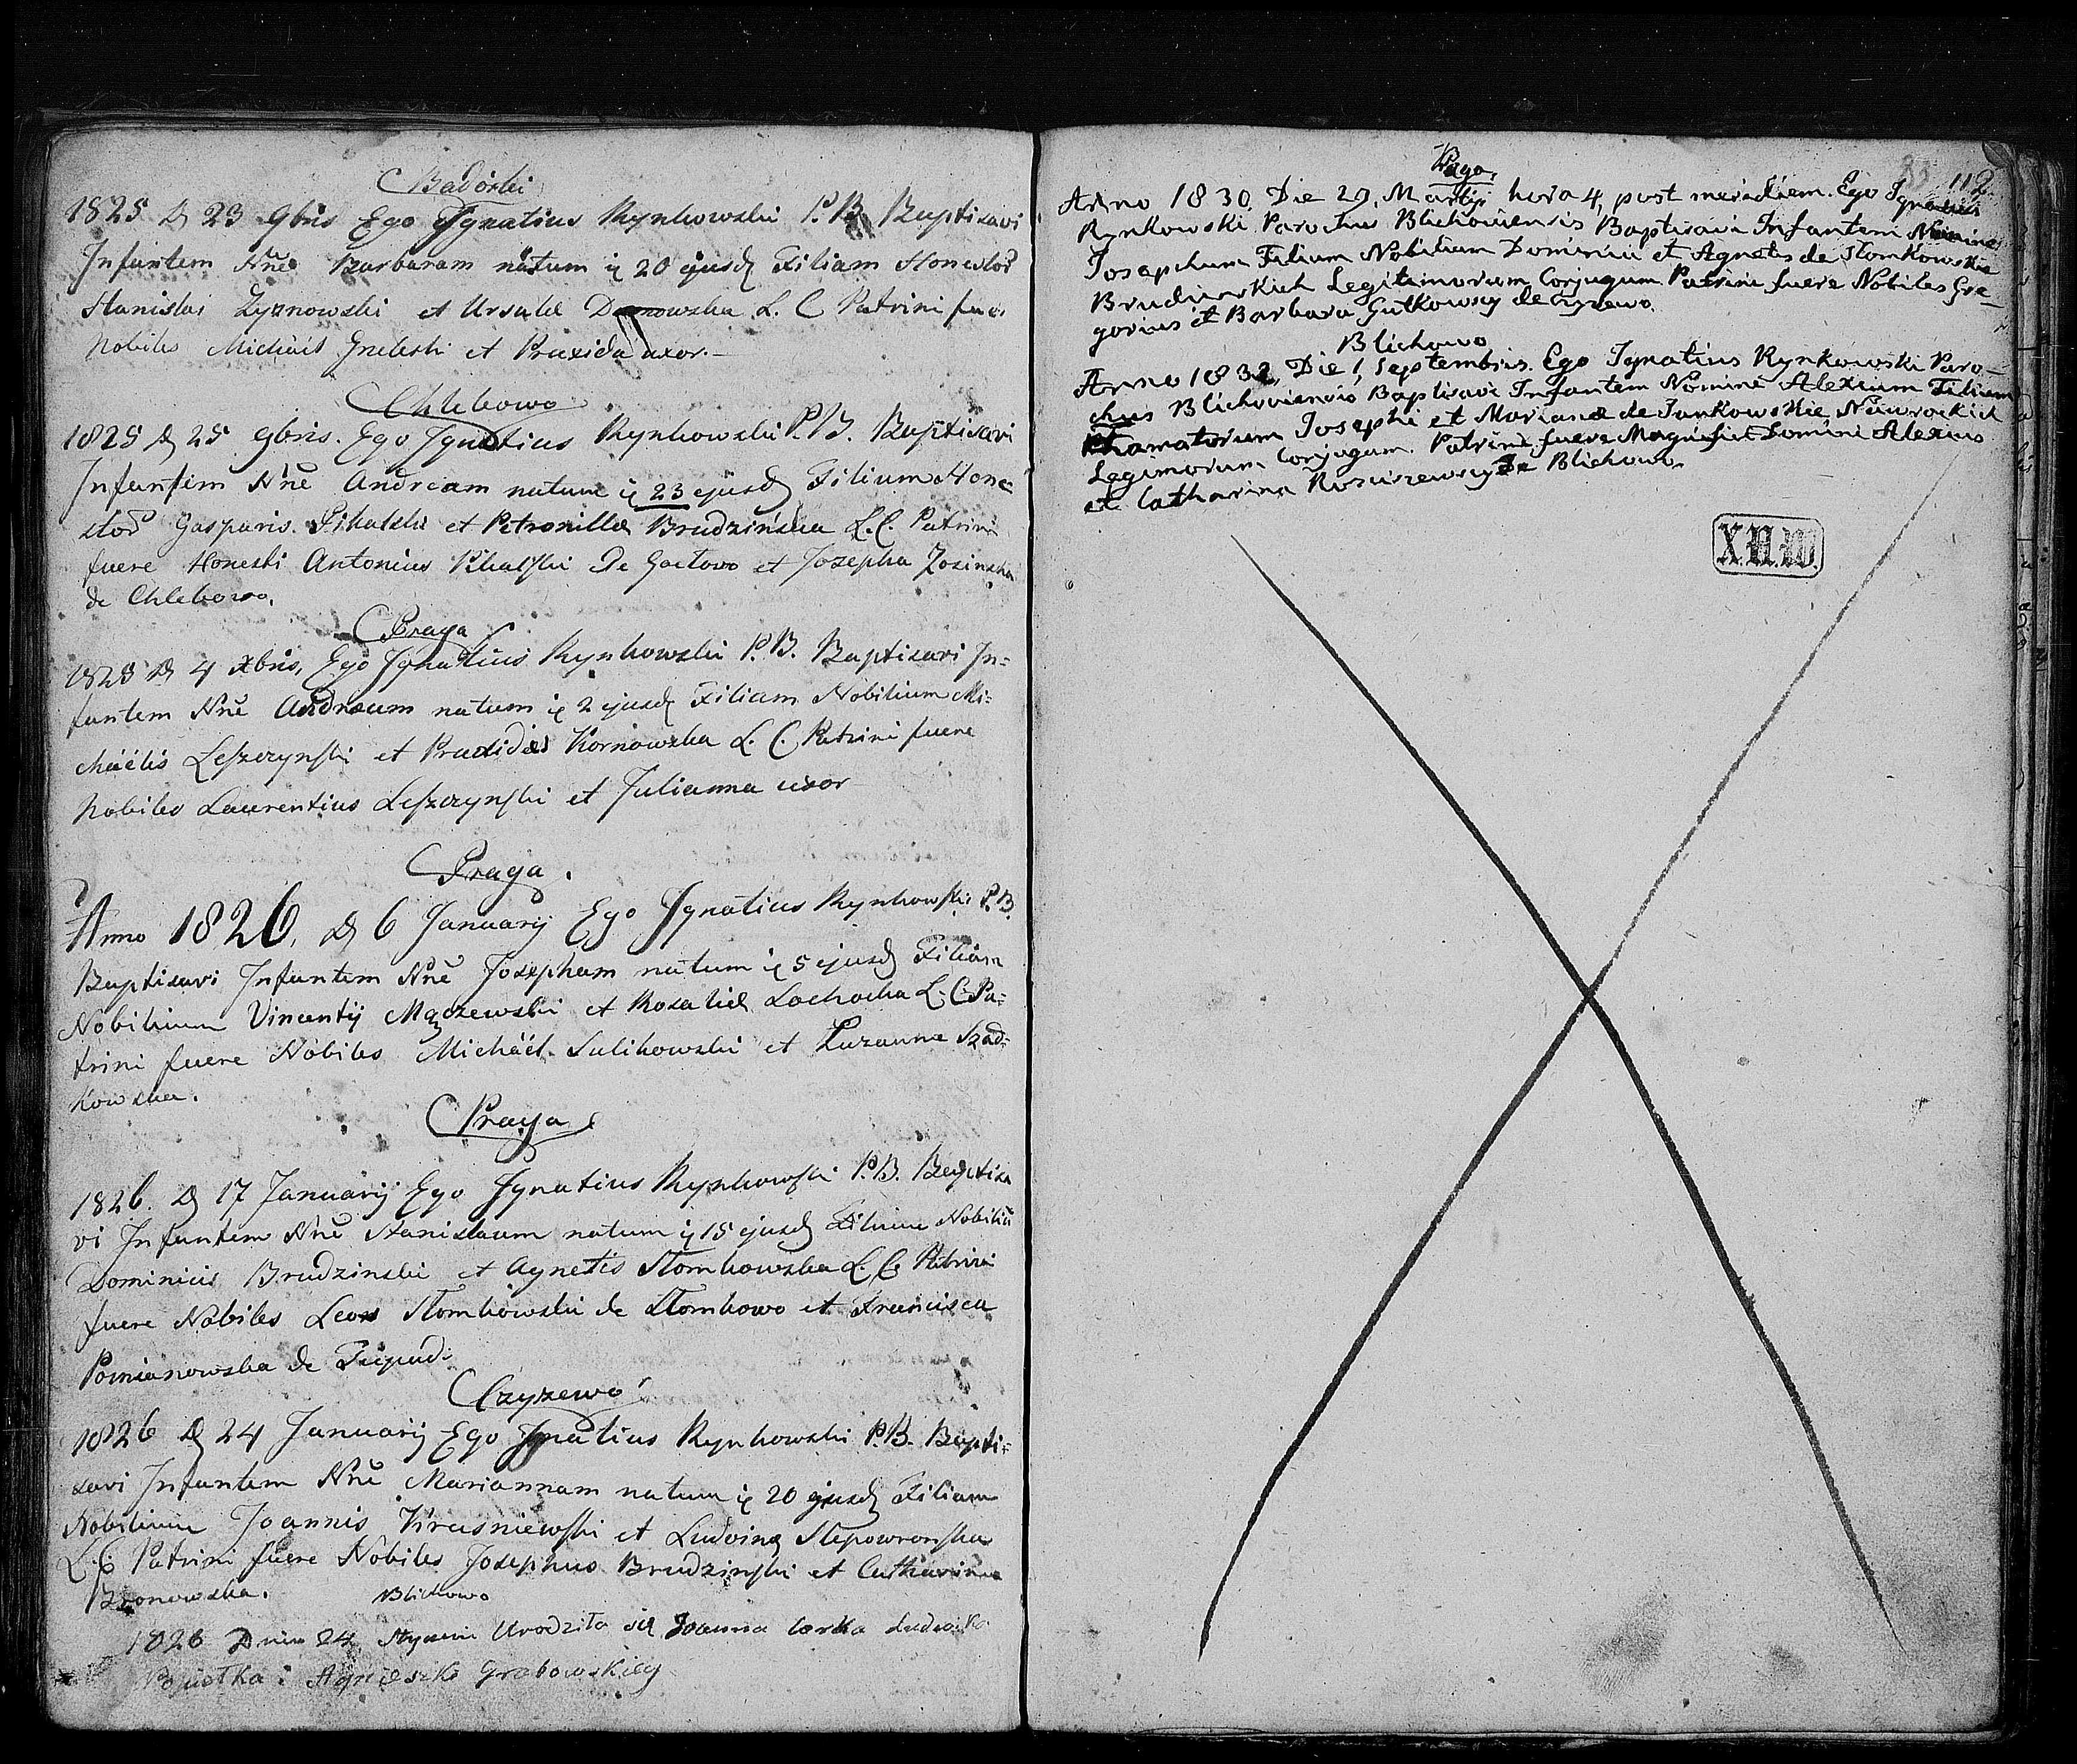 Badorki
1825 D 23 9bris Ego Ignatius Rynkowski P.B. Baptisavi
Infantem Nne Barbaram natum ię 20 ejusd Filiam Honestor
Stanislai Zyznowski et Ursulæ L. C Patrini fuer
Nobiles Michäel et Praxida uxor.—
Chlebowo
1825 D 25 9bris. Ego Ignatius Rynkowski P.B. Baptisavi
Infantem Nne Andream natum ię 23 ejusd Filium Hone=
stor Gasparis. Pikalski et Petronillæ Brudzińska L.C. Patrini
fuere Honesti Antonius Pikalski De Goctowo et Josepha Zosinska
de Chlebowo.
Praga
1825 D 4 Xbris, Ego Ignatius Rynkowski P.B. Baptisavi In=
fantem Nne Andream natum ię 2 ejusd Filium Nobilium Mi=
chäelis Leszczynski et Praxidæ Kornowska L. C. Patrini fuere
Nobiles Laurentius Leszczynski et Julianna uxor
Praga.
Anno 1826, D 6 Januarij Ego Ignatius Rynkowski P.B.
Baptisavi Infantem Nne Josepham natum ię 5 ejusd Filiam
Nobilium Vincentij Mączewski et Rosaliæ Lochocka L. C. Pa=
trini fuere Nobiles Michäel Sulikowski et Zuzanna Szad=
kowska.
Praga
1826. D 17 Januarij Ego Ignatius Rynkowski P.B. Baptisa
vi Infantem Nne Stanislaum natum ię 15 ejusd Filium Nobiliũ
Dominicis Brudzinski et Agnetis Słomkowska L. C. Patrini
fuere Nobiles Leon Słomkowski de Słomkowo et Francisca
Pomianowska de
Czyzewo
1826 D 24 Januarij Ego Ignatius Rynkowski P.B. Bapti=
savi Infantem Nne Mariannam natum ię 20 ejusd Filiam
Nobilium Joannis Krasniewski et Ludvinæ Slepowronska
L. C. Patrini fuere Nobiles Josephus Brudzinski et Catharina
Bronowska.
Blichowo
1826 Dnia 24 Stycznia Urodziła się Joanna Corka Ludwika
i Agnieszki Grabowskiey
Praga,
112.
Anno 1830. Die 29, Martij hora 4, post meridiem. Ego Ignatius
Rynkowski Parochus Blichoviensis Baptisavi Infantem Nomine
Josephum Filium Nobilium Dominici et Agnetis de Słomkowskie
Brudzinskich Legitimorum Conjugum. Patrini fuere Nobiles Gre—
gorius et Barbara Gutkowscy de Czyzewo.
Blichowo
Anno 1832, Die 1, Septembris. Ego Ignatius Rynkowski Paro—
chus Blichoviensis Baptisavi Infantem Nomine Alexium Filium
Famatorum Josephi et Marianæ de Jankowskie Nawrockich
Legimorum Conjugum. Patrini fuere Magnifici Domini Alexius
et Catharina Rosciszewscy De Blichowo.
X.U.W.